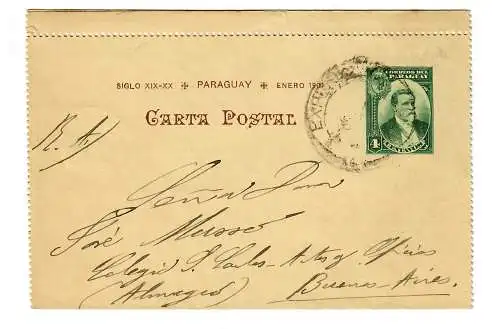 SIGLO XIX-XX ✠ PARAGUAY ✠ ENERO 190
CORREOS DEL
PARAGUAY
CARTA POSTAL
4 CENTAVOS 4
R. A)
Señor Don
José Musso
Colegio S. Carlos - Artes y Oficios
(Almagro) Buenos-Aires.